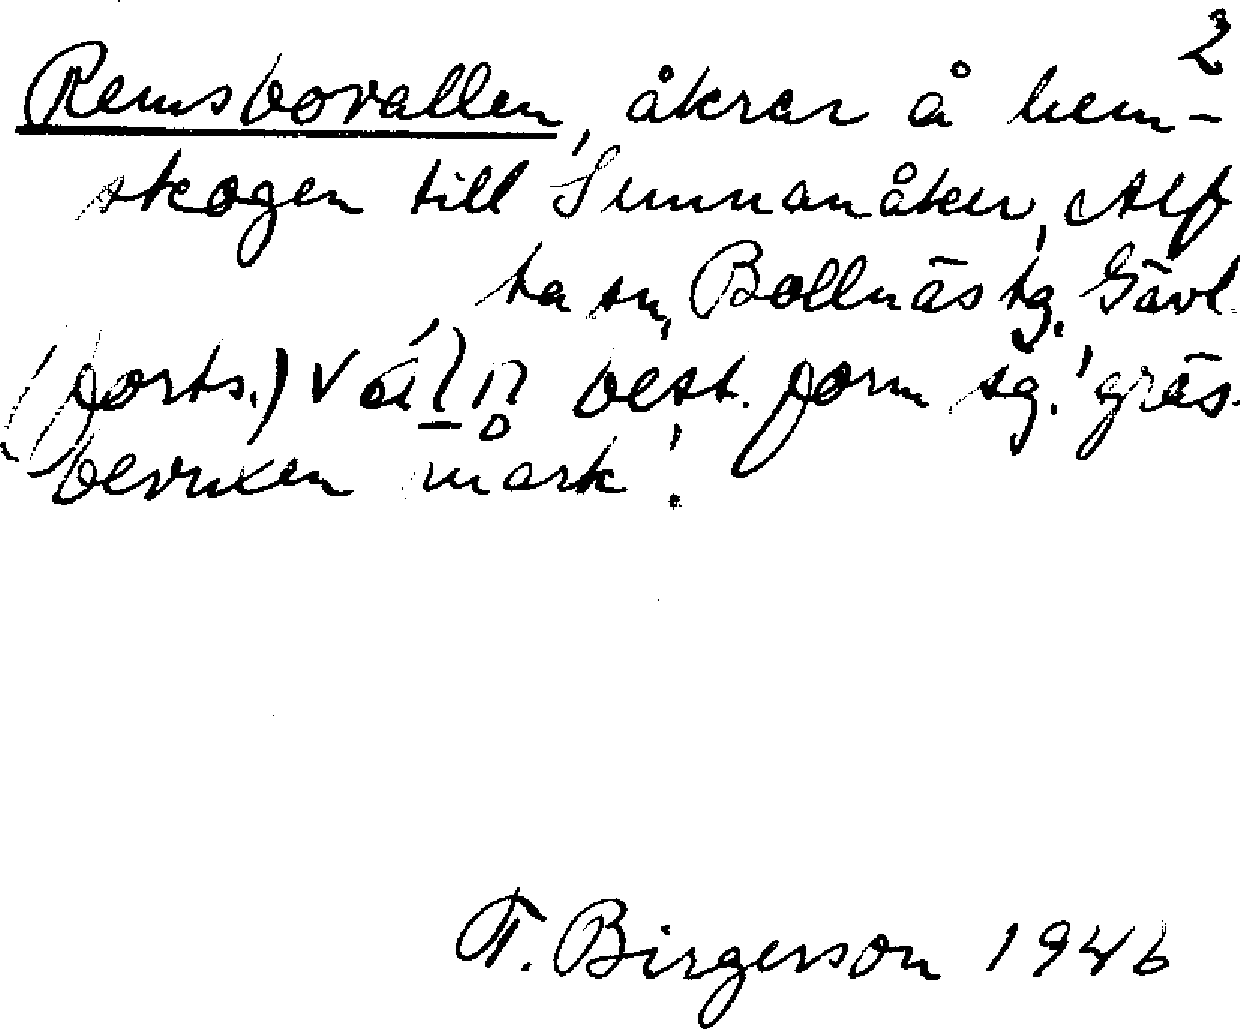 2
Remsbovallen, åkrar å hem-
skogen till Sunnanåker, Alf
ta sn, Bollnäs tg. Gävl.
(forts.) best. form sg. 'gräs-
bevuxen mark'.
F. Birgerson 1946